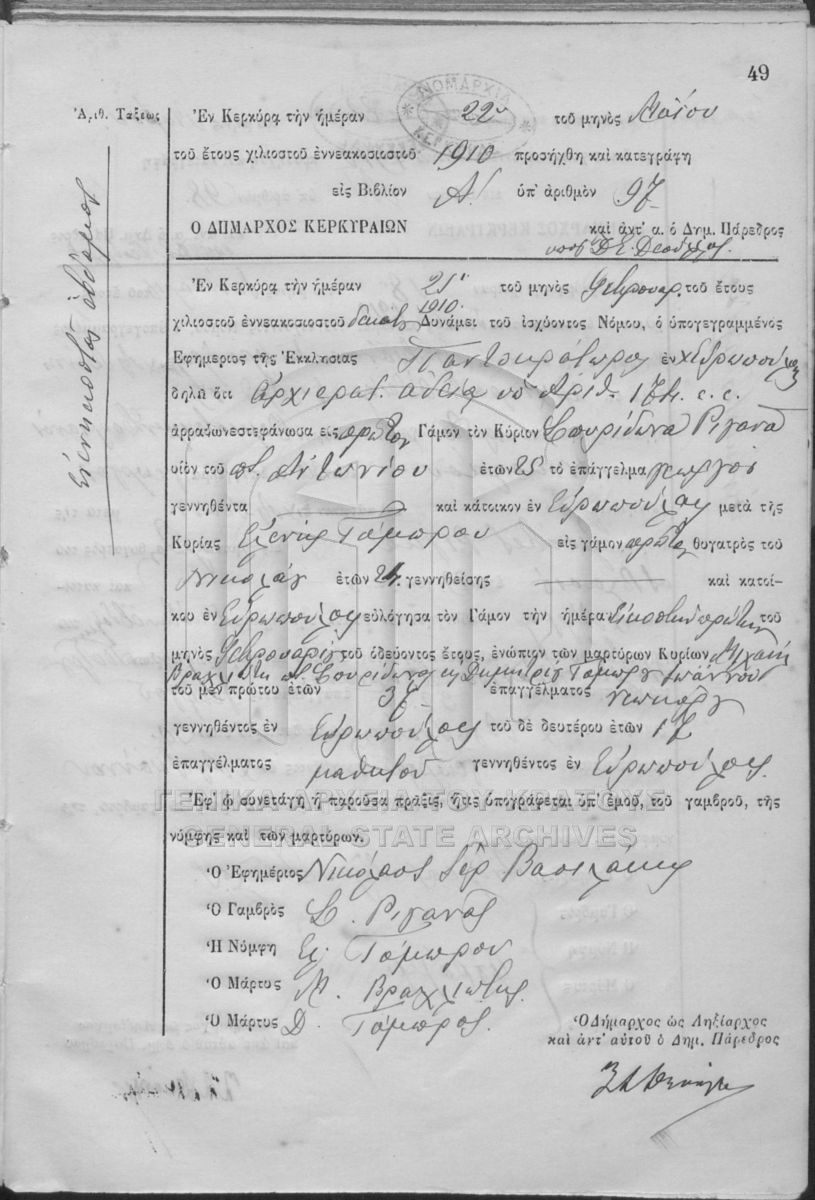 49
Ἀριθ. Τάξεως
ἐνενηκοστὸς ἕβδομος
ΝΟΜΑΡΧΙΑ
Ἐν Κερκύρᾳ τὴν ἡμέραν 22ᾳ τοῦ μηνὸς Μαΐου
τοῦ ἔτους χιλιοστοῦ ἐννεακοσιοστοῦ 1910 προσήχθη καὶ κατεγράφη
εἰς Βιβλίον Α! ὑπ' ἀριθμὸν 97
Ο ΔΗΜΑΡΧΟΣ ΚΕΡΚΥΡΑΙΩΝ καὶ ἀντ' α. ὁ Δημ. Πάρεδρος
Ἐν Κερκύρᾳ τὴν ἡμέραν 21ᾳ τοῦ μηνὸς Φεβρουαρ. τοῦ ἔτους
1910.
χιλιοστοῦ ἐννεακοσιοστοῦ δεκάτου Δυνάμει τοῦ ἰσχύοντος Νόμου, ὁ ὑπογεγραμμένος
Ἐφημέριος τῆς Ἐκκλησίας Παντοκράτωρος ἐν χ Εὐρωπούλλοις
δηλῶ ὅτι Ἀρχιερατ. ἀδείᾳ ὑπ' Ἀριθ. 174. ε. ε.
ἀρραβωνεστεφάνωσα εἰς πρῶτον Γάμον τὸν Κύριον Σπυρίδωνα Ριγανᾶ
υἱὸν τοῦ π. Ἀντωνίου ἐτῶν 25 τὸ ἐπάγγελμα γεωργὸς
γεννηθέντα καὶ κάτοικον ἐν Εὐρωπούλλοις μετὰ τῆς
Κυρίας Ἑλένης Τόμπρου εἰς γάμον πρῶτον θυγατρὸς τοῦ
Νικολάου ἐτῶν 24. γεννηθείσης καὶ κατοί-
κου ἐν Εὐρωπούλλοις εὐλόγησα τὸν Γάμον τὴν ἡμέραν εἰκοστὴν πρώτην τοῦ
μηνὸς Φεβρουαρίου τοῦ ὁδεύοντος ἔτους, ἐνώπιον τῶν μαρτύρων Κυρίων Μιχαὴλ
Βραχλιώτη π. Σπυρίδωνος κ Δημητρίου Τόμπρου Ἰωάννου
τοῦ μὲν πρώτου ἐτῶν 37 ἐπαγγέλματος
γεννηθέντος ἐν Εὐρωπούλλοις τοῦ δὲ δευτέρου ἐτῶν 17
ἐπαγγέλματος μαθητοῦ γεννηθέντος ἐν Εὐρωπούλλοις.
Ἐφ' ᾧ συνετάγη ἡ παροῦσα πρᾶξις, ἥτις ὑπογράφεται ὑπ' ἐμοῦ, τοῦ γαμβροῦ, τῆς
ΓΕΝΙΚΑ ΑΡΧΕΙΑ ΤΟΥ ΚΡΑΤΟΥΣ
νύμφης καὶ τῶν μαρτύρων.
GENERAL STATE ARCHIVES
Ὁ Ἐφημέριος Νικόλαος Ἱερ Βασιλάκης
Ὁ Γαμβρὸς Σ. Ριγανᾶς
Ἡ Νύμφη Ελ. Τόμπρου
Ὁ Μάρτυς Μ. Βραχλιώτης
Ὁ Μάρτυς Δ. Τόμπρος.
Ὁ Δήμαρχος ὡς Ληξίαρχος
καὶ ἀντ' αὐτοῦ ὁ Δημ. Πάρεδρος